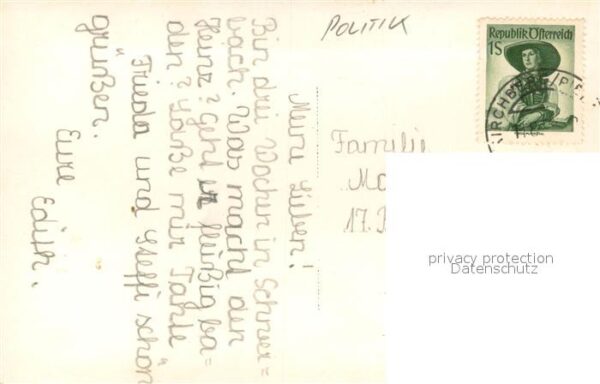 POLITIK
Republik Österreich
1S
Meine Lieben!
Bin drei Wochen in Schneer=
bach. Was macht der
Heinz? Geht er fleißig ba=
den? Laße mir Tante
Frieda und Steffi schön
grüßen.
Eure
Edith.
Familie
Ma
17.
privacy protection
Datenschutz